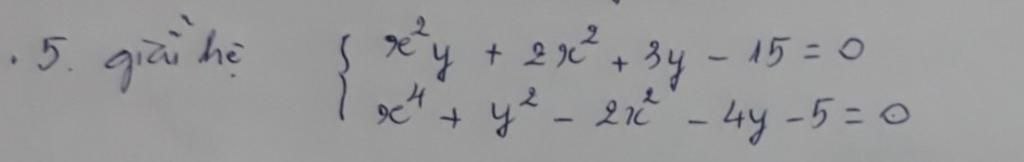 . 5. giải hệ { x²y + 2x² + 3y - 15 = 0
x⁴ + y² - 2x² - 4y - 5 = 0